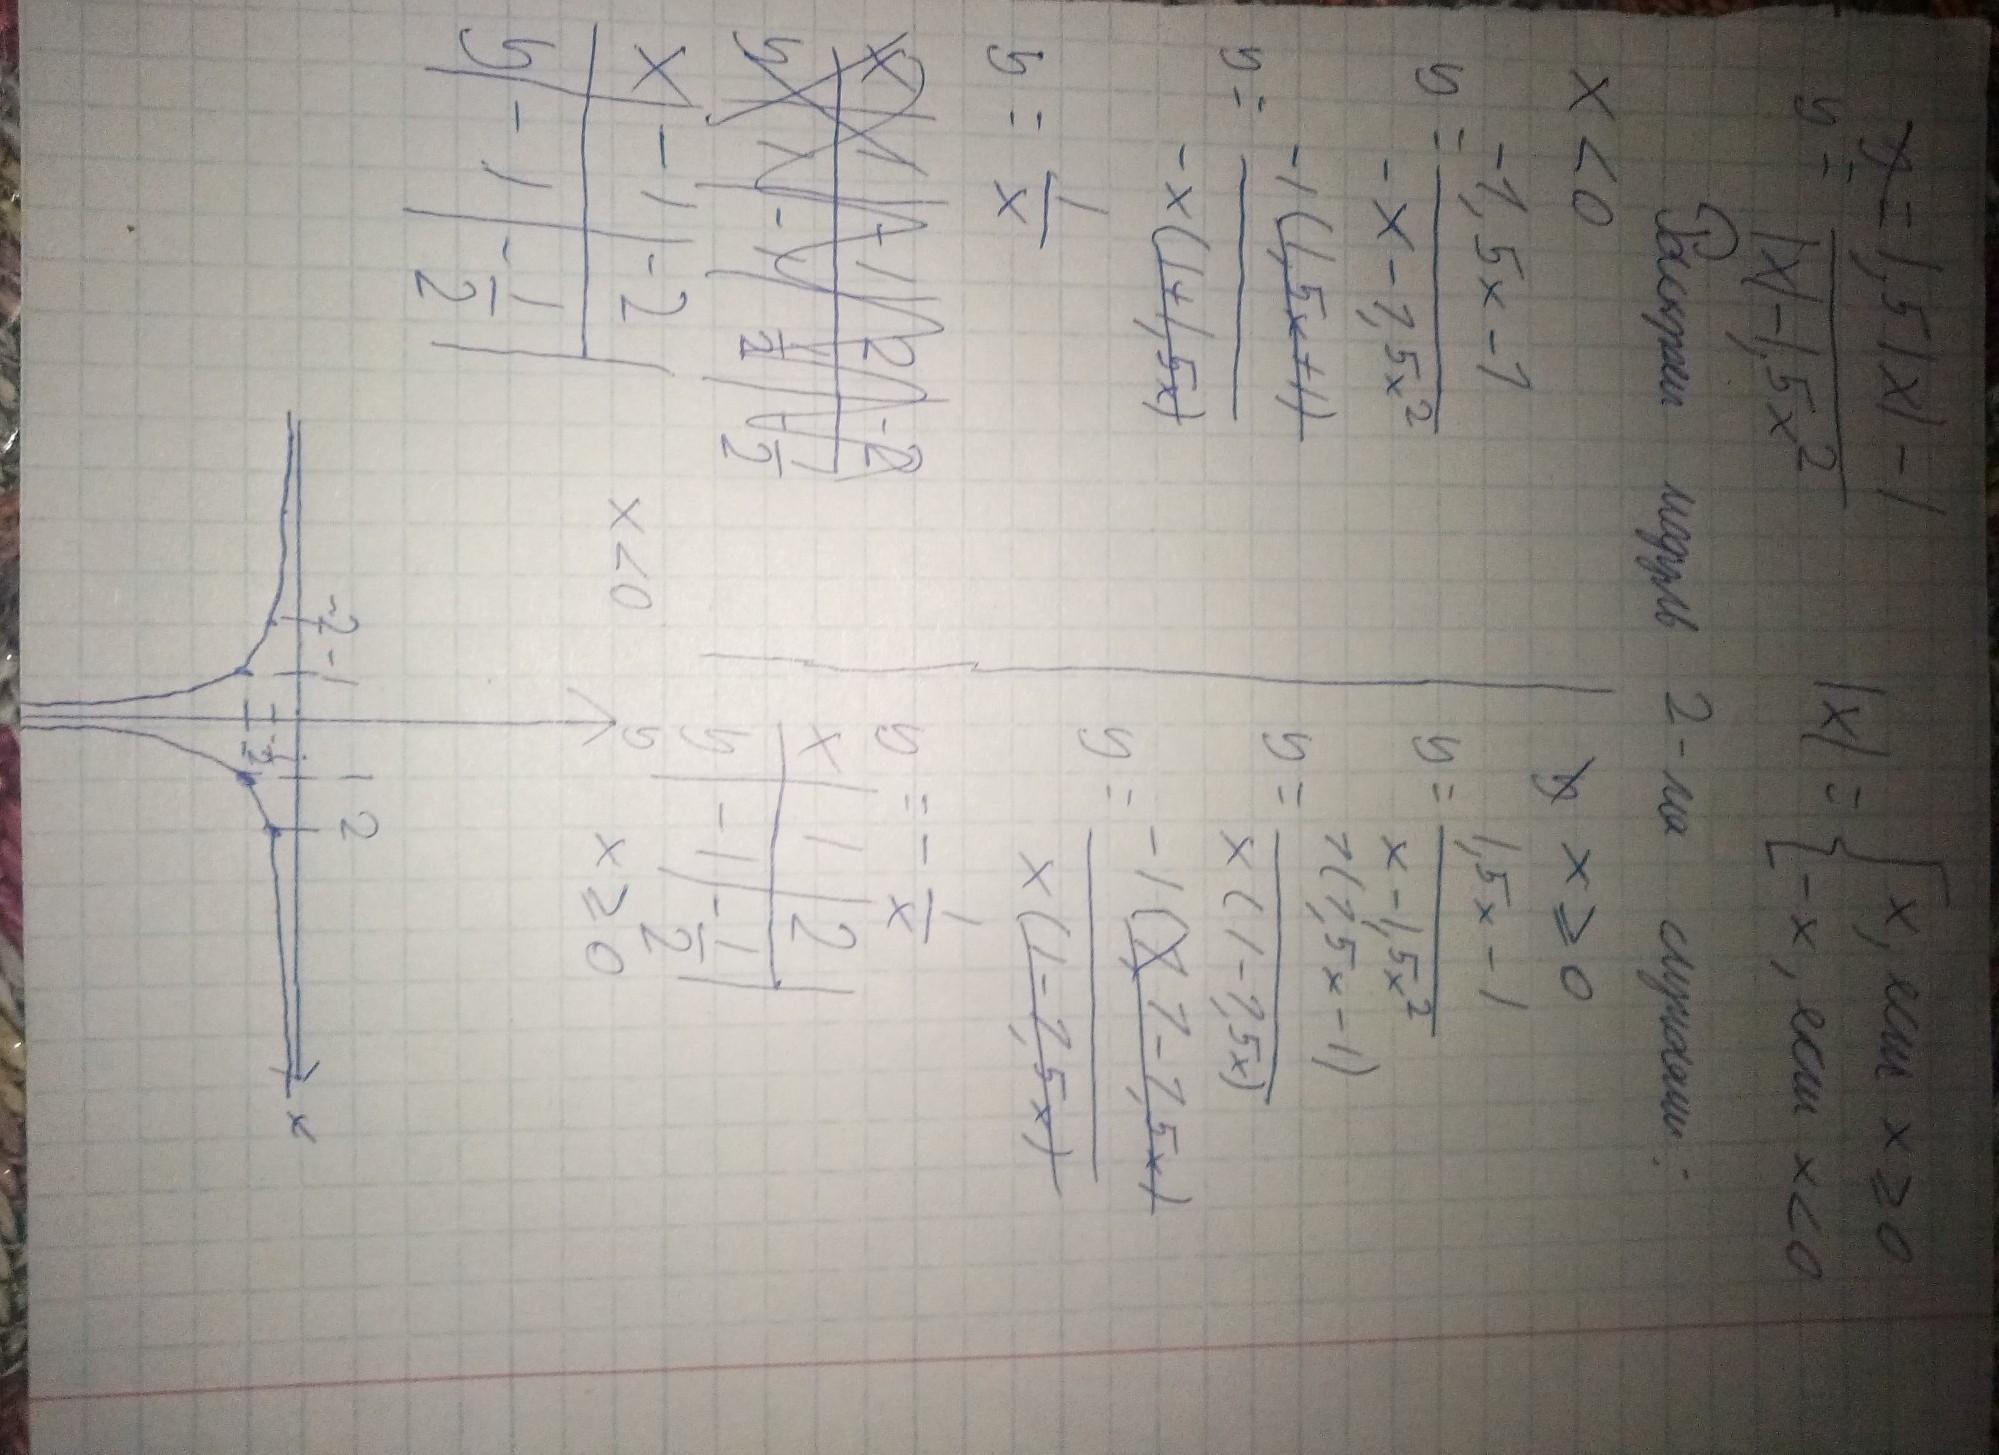 y = 1,5|x| - 1
y = |x| - 1,5x²
|x| = { x, если x ≥ 0
-x, если x < 0
Раскрываем модуль 2-мя случаями:
x < 0
y = -1,5x - 1
-x - 1,5x²
y = -1(1,5x + 1)
-x(1 + 1,5x)
y = 1
x
x 1 -1 2 -2
y 1 -1 1/2 -1/2
x -1 -2
y -1 -1/2
x < 0
x ≥ 0
y = 1,5x - 1
x - 1,5x²
y = 1(1,5x - 1)
x(1 - 1,5x)
y = -1(1 - 1,5x)
x(1 - 1,5x)
y = - 1
x
x 1 2
y -1 -1/2
x ≥ 0
y
-2 -1 1 2
-1
x